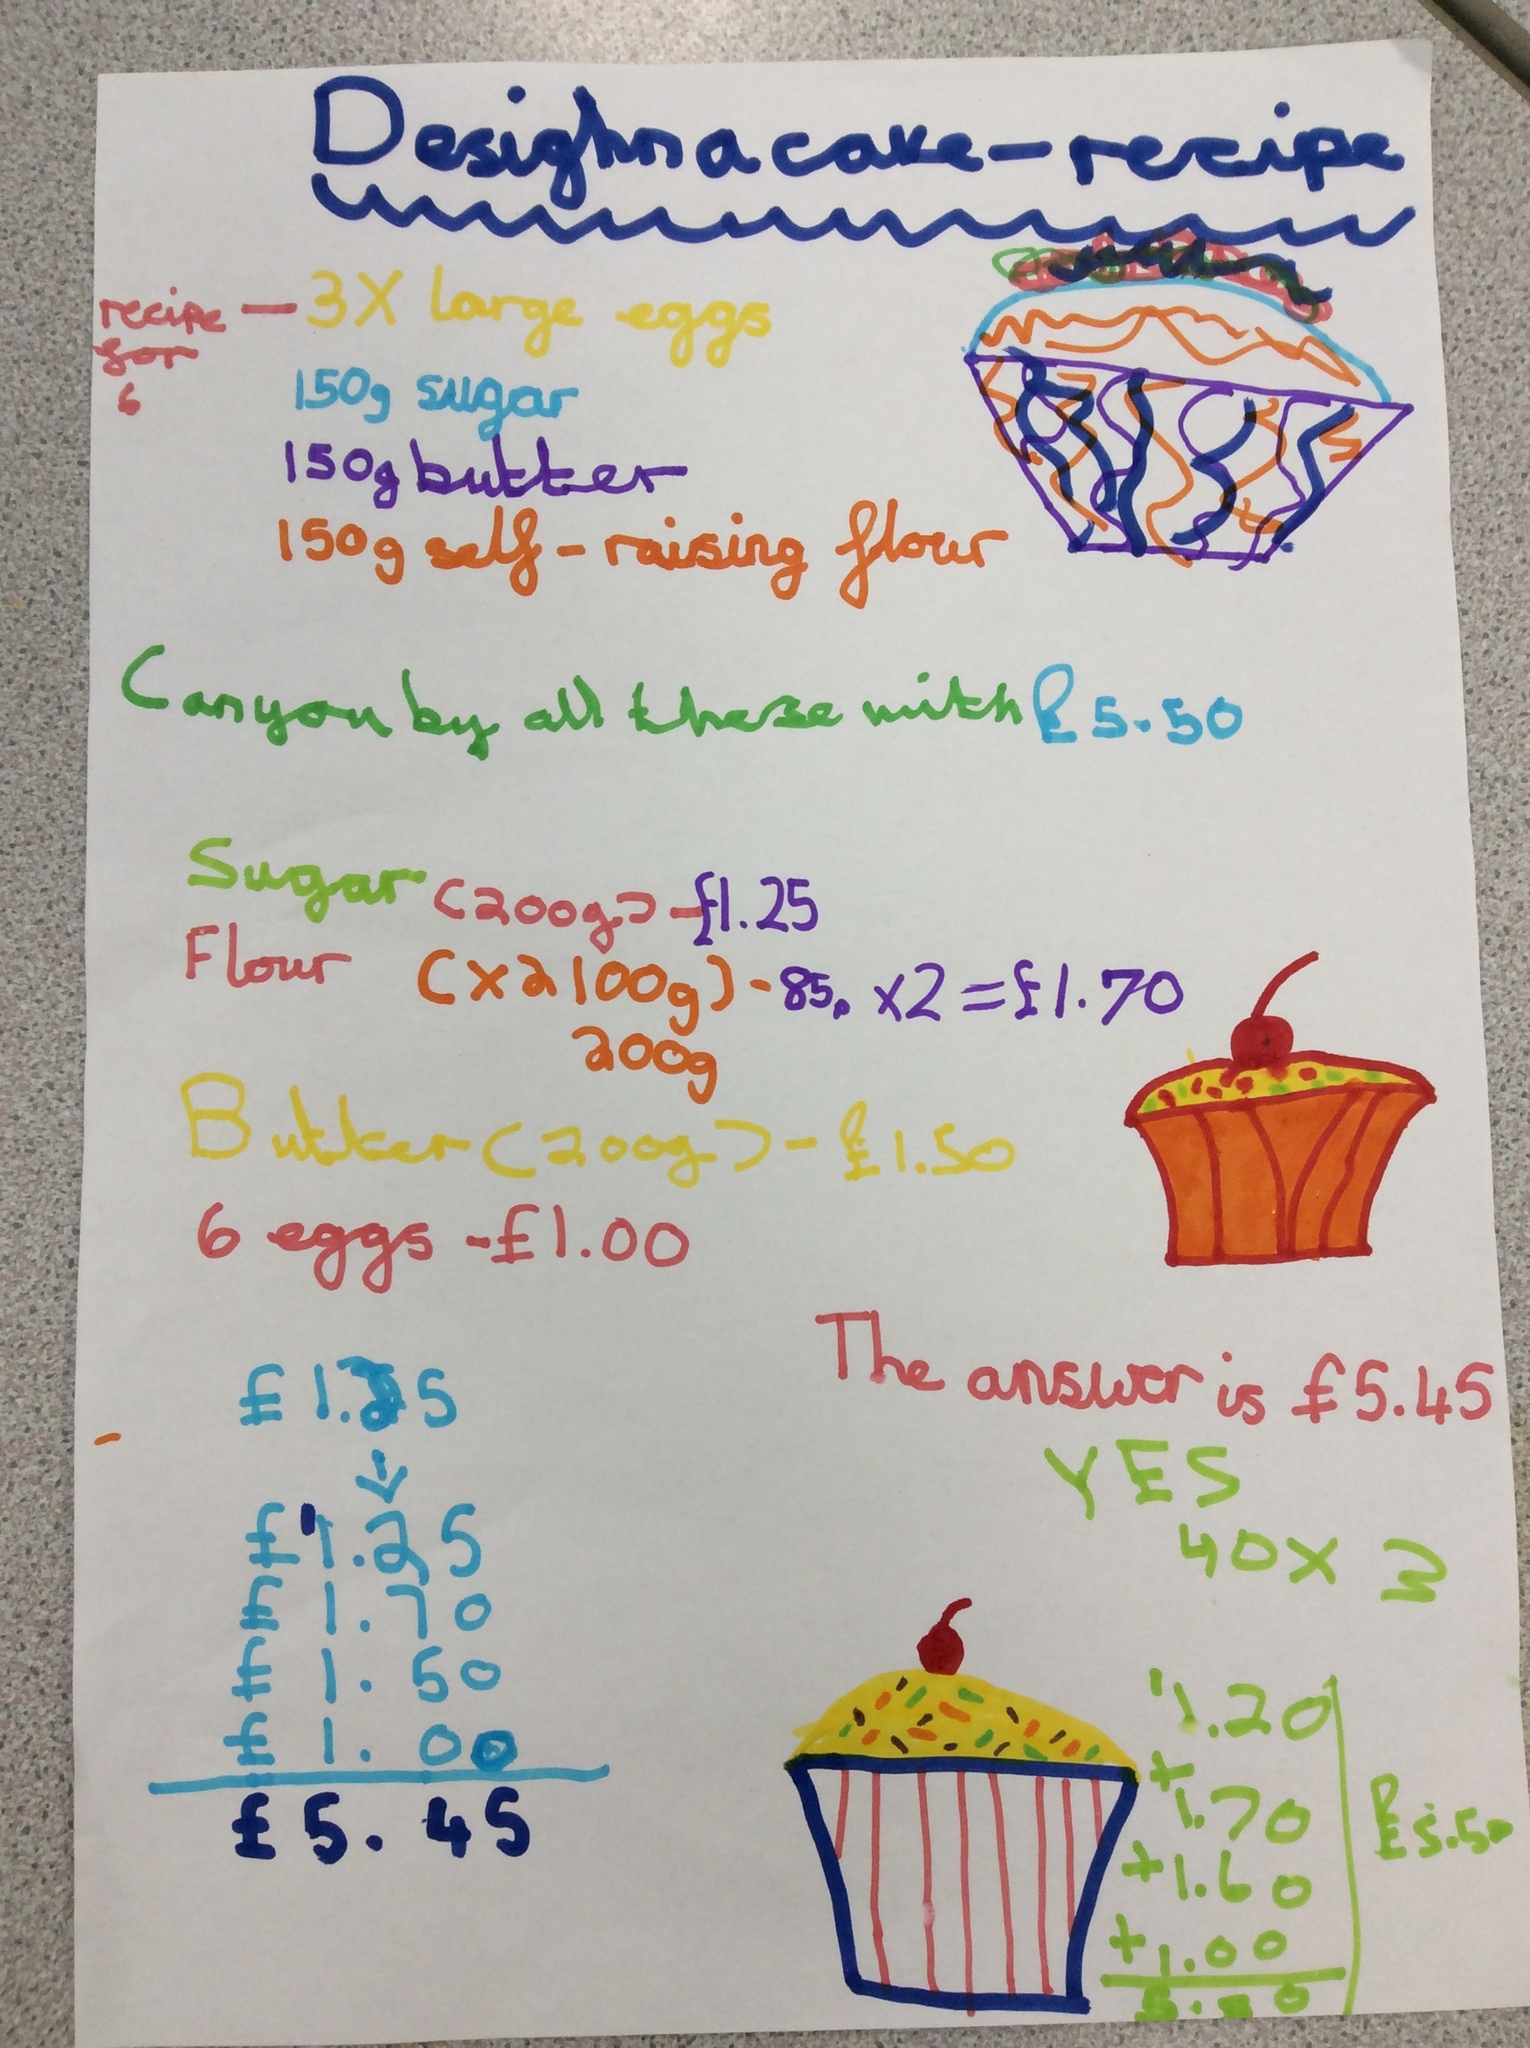 Desighn a cake - recipe
recipe for 6 - 3x large eggs
150g sugar
150g butter
150g self-raising flour
Can you by all these with £5.50
Sugar (200g) - £1.25
Flour (x2 100g) - 85p x2 = £1.70
200g
Butter (200g) - £1.50
6 eggs - £1.00
The answer is £5.45
YES
40 x 3
£1.25
£1.25
£1.70
£1.50
£1.00
£5.45
1.20
+1.70
+1.60
+1.00
£5.50